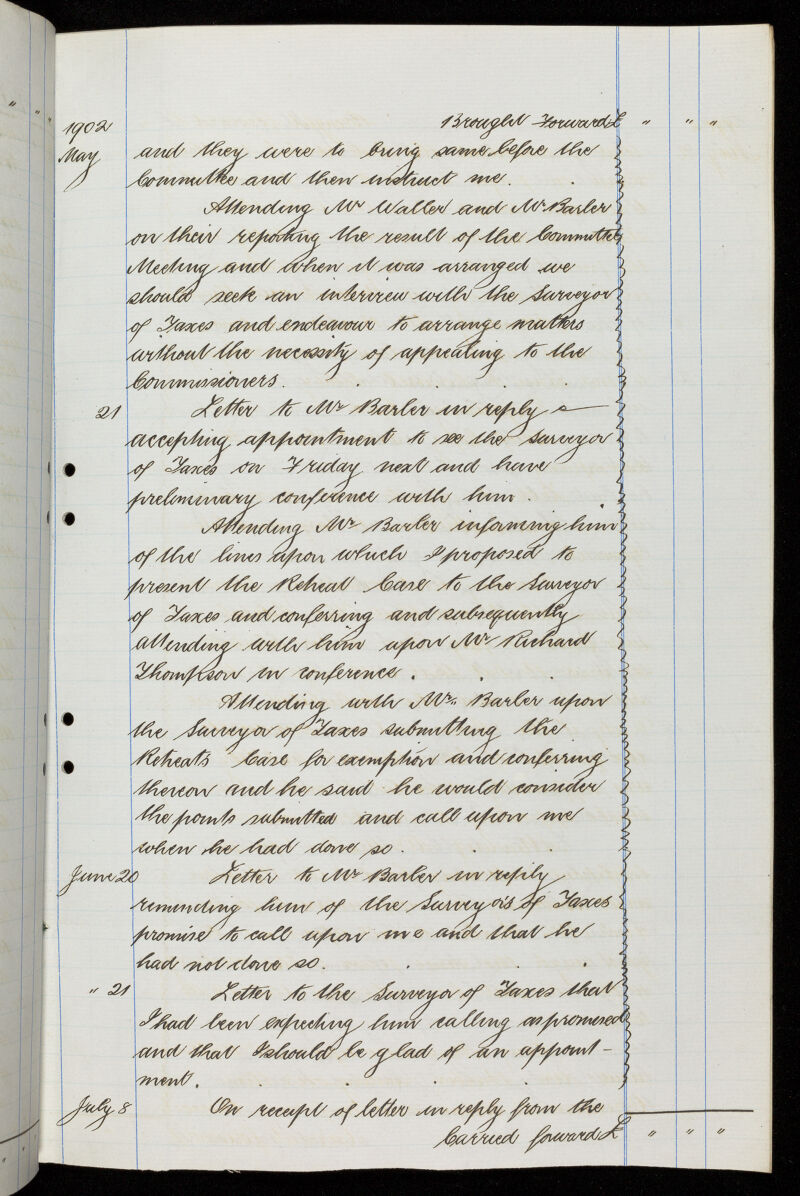 1902 Brought Forward £ " " "
May and they were to bring same before the
Committee and then instruct me.
Attending Mr Waller and Mr Barler
on their reporting the result of the Committee
Meeting and when it was arranged we
should seek an interview with the Surveyor
of Taxes and endeavour to arrange matters
without the necessity of appealing to the
Commissioners.
21 Letter to Mr Barler in reply
accepting appointment to see the Surveyor
of Taxes on Friday next and have
preliminary conference with him.
Attending Mr Barler informing him
of the lines upon which I proposed to
present the Retreat Case to the Surveyor
of Taxes and conferring and subsequently
attending with him upon Mr Richard
Thompson in conference.
Attending with Mr. Barler upon
the Surveyor of Taxes submitting the
Retreats Case for exemption and conferring
thereon and he said he would consider
the points submitted and call upon me
when he had done so.
June 20 Letter to Mr Barler in reply
reminding him of the Surveyors of Taxes
promise to call upon me and that he
had not done so.
" 21 Letter to the Surveyor of Taxes that
I had been expecting him calling as promised
and that I should be glad of an appoint-
ment.
July 8 On receipt of letter in reply from the
Carried forward £ " " "